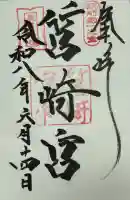 奉拝
筥崎宮
令和八年六月十四日